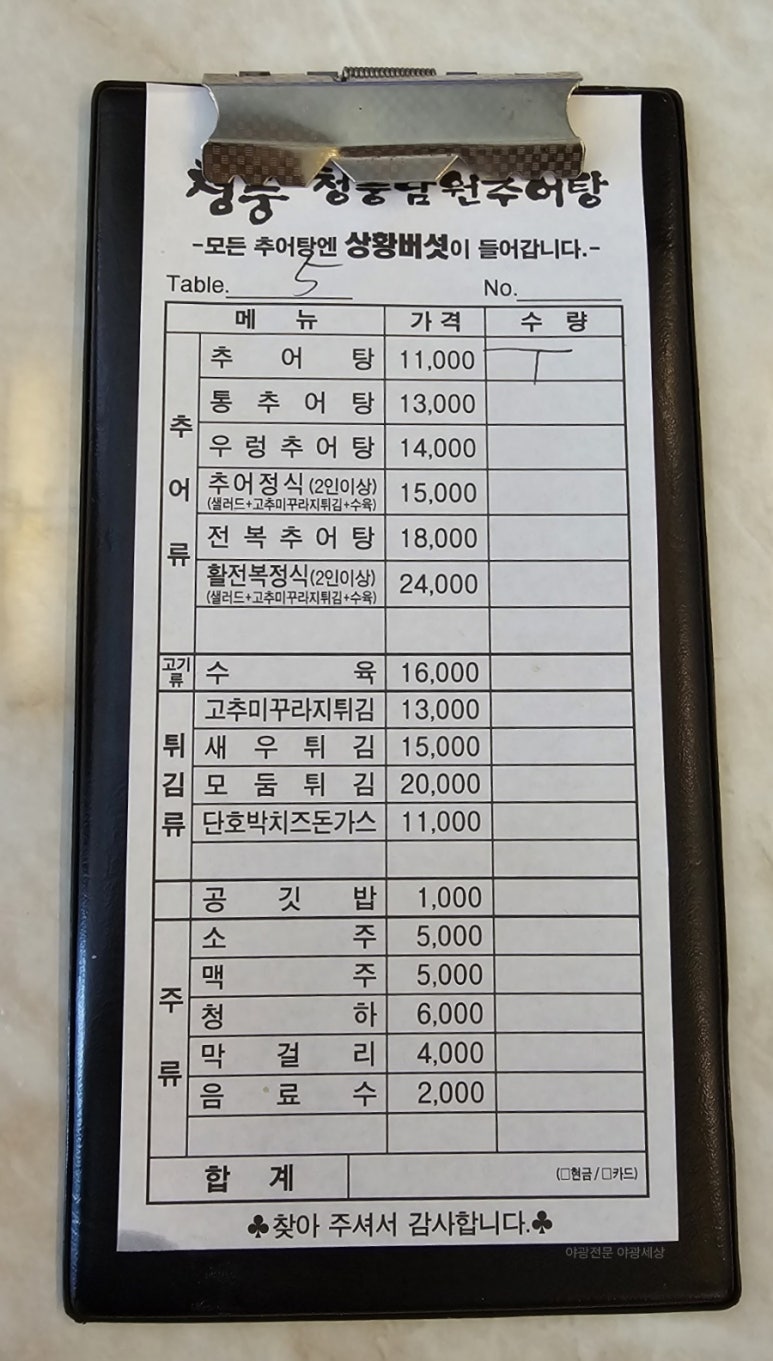 청풍 청풍남원추어탕
-모든 추어탕엔 상황버섯이 들어갑니다.-
Table. 5 No.
메 뉴 가 격 수 량
추어류
추 어 탕 11,000
통 추 어 탕 13,000
우 렁 추 어 탕 14,000
추어정식 (2인이상) 15,000
(샐러드+고추미꾸라지튀김+수육)
전 복 추 어 탕 18,000
활전복정식(2인이상) 24,000
(샐러드+고추미꾸라지튀김+수육)
고기류
수 육 16,000
튀김류
고추미꾸라지튀김 13,000
새 우 튀 김 15,000
모 둠 튀 김 20,000
단호박치즈돈가스 11,000
공 깃 밥 1,000
주류
소 주 5,000
맥 주 5,000
청 하 6,000
막 걸 리 4,000
음 료 수 2,000
합 계 (□현금 / □카드)
♣찾아 주셔서 감사합니다.♣
야광전문 야광세상